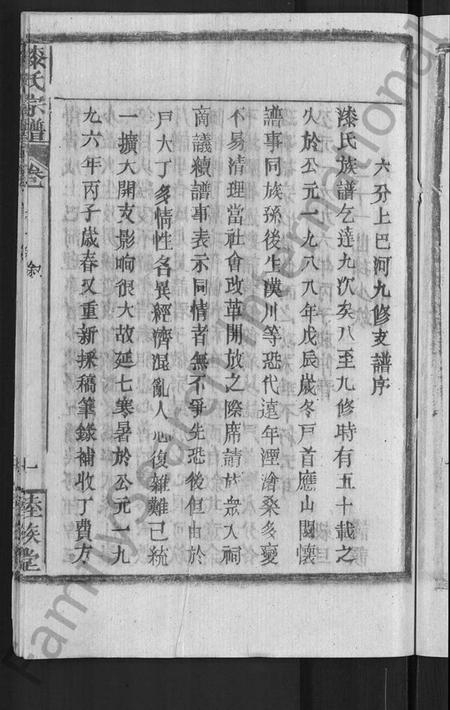 六分上巴河九修支譜序
漆氏族譜乞達九次矣八至九修時有五十載之
久於公元一九八八年戊辰歲冬戸首應山関懷
譜事同族孫後生漢川等恐代遠年湮滄桑多變
不易清理當社會改革開放之際席請族衆入祠
商議續譜事表示同情者無不爭先恐後但由於
戸大丁多情性各異經濟混亂人心復雜難已統
一擴大開支影响很大故延七寒暑於公元一九
九六年丙子歲春又重新採稿筆錄補收丁費方
漆氏宗譜
卷
叙
一
陸族堂
FamilySearch International